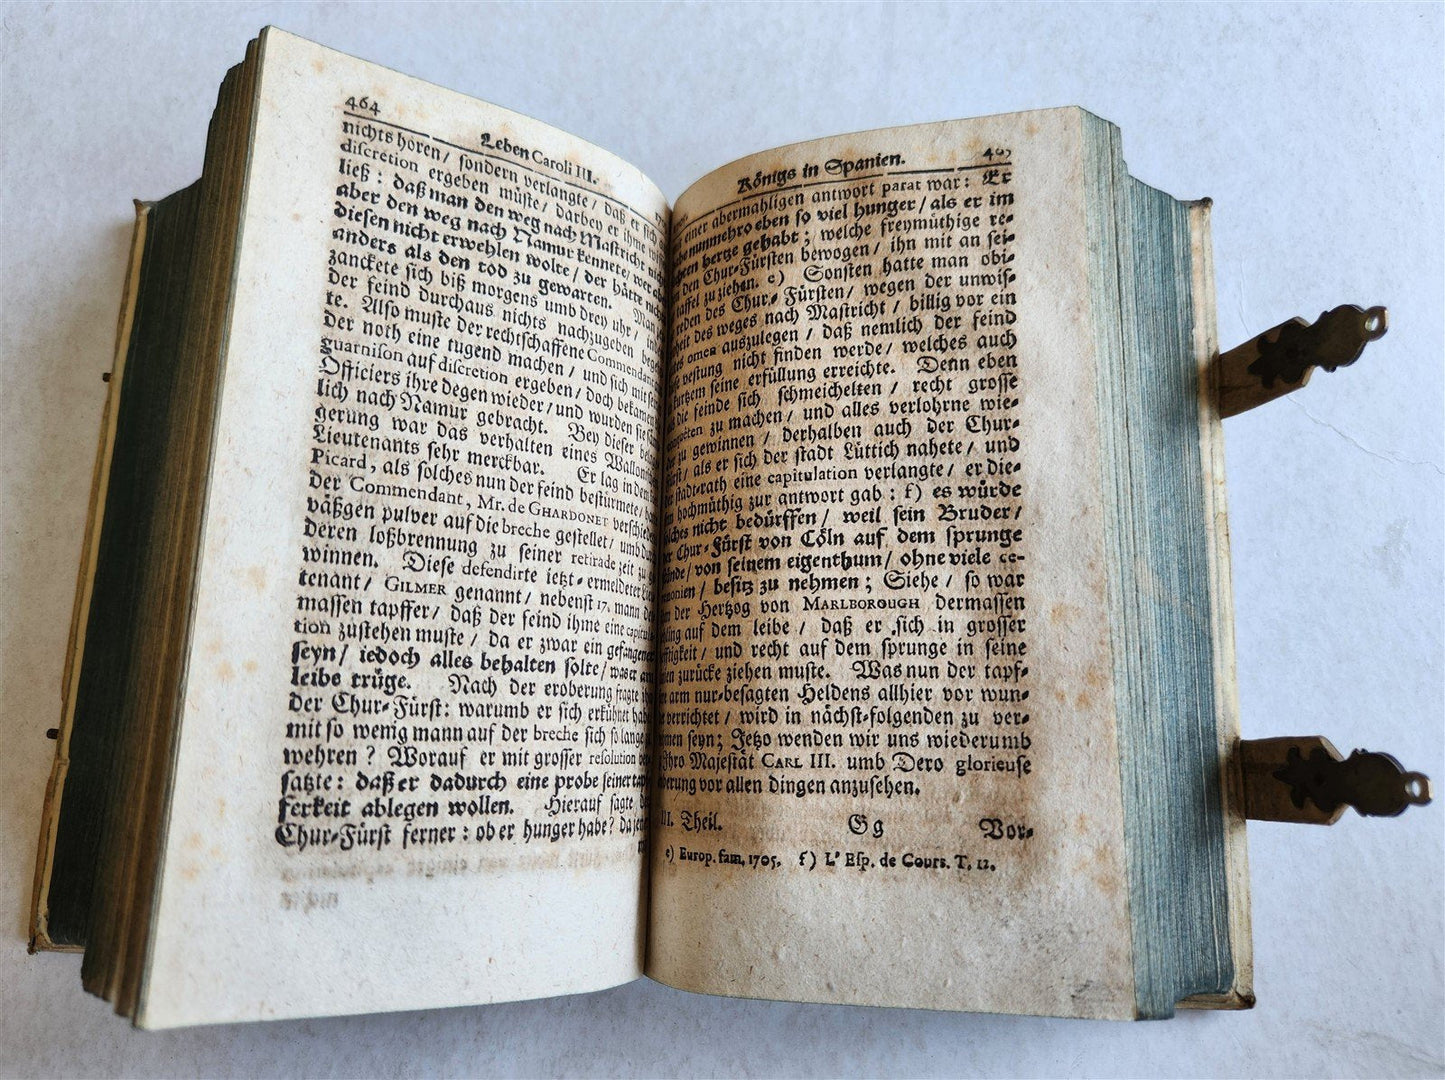 464
Leben Caroli III.
nichts hören / sondern verlangte / daß er sich
discretion ergeben müste / darbey er ihme
ließ: daß man den weg nach Mastricht nicht
aber den weg nach Namur kennete / wer
diesen nicht erwehlen wolte / der hätte
anders als den tod zu gewarten. Man
zanckete sich biß morgens umb drey uhr /
der feind durchaus nichts nachzugeben
te. Also muste der rechtschaffene Commendant
der noth eine tugend machen / und sich mit
guarnison auf discretion ergeben / doch bekamen
Officiers ihre degen wieder / und wurden
lich nach Namur gebracht. Bey dieser
gerung war das verhalten eines
Lieutenants sehr merckbar. Er lag in dem
Picard, als solches nun der feind bestürmete /
der Commendant, Mr. de GHARDONET
väßgen pulver auf die breche gestellet /
deren loßbrennung zu seiner retirade zeit zu
winnen. Diese defendirte ietzt-ermeldeter
tenant / GILMER genannt / nebenst 17. mann
massen tapffer / daß der feind ihme eine
tion zustehen muste / da er zwar ein gefangener
seyn / iedoch alles behalten solte / was er am
leibe trüge. Nach der eroberung fragte
der Chur-Fürst: warumb er sich erkühnet
mit so wenig mann auf der breche sich so lange
wehren? Worauf er mit grosser resolution
satzte: daß er dadurch eine probe seiner
ferkeit ablegen wollen. Hierauf sagte
Chur-Fürst ferner: ob er hunger habe?
Königs in Spanien.
einer abermahligen antwort parat war: Er
nunmehro eben so viel hunger / als er im
hertze gehabt; welche freymüthige re-
den Chur-Fürsten bewogen / ihn mit an sei-
taffel zu ziehen. e) Sonsten hatte man obi-
reden des Chur-Fürsten / wegen der unwis-
heit des weges nach Mastricht / billig vor ein
omen auszulegen / daß nemlich der feind
vestung nicht finden werde / welches auch
kurtzem seine erfüllung erreichte. Denn eben
die feinde sich schmeichelten / recht grosse
zu machen / und alles verlohrne wie-
zu gewinnen / derhalben auch der Chur-
als er sich der stadt Lüttich nahete / und
stadt-rath eine capitulation verlangte / er die-
hochmüthig zur antwort gab: f) es würde
nicht bedürffen / weil sein Bruder /
Chur-Fürst von Cöln auf dem sprunge
von seinem eigenthum / ohne viele ce-
besitz zu nehmen; Siehe / so war
der Hertzog von MARLBOROUGH dermassen
auf dem leibe / daß er sich in grosser
und recht auf dem sprunge in seine
zurücke ziehen muste. Was nun der tapf-
arm nur-besagten Heldens allhier vor wun-
verrichtet / wird in nächst-folgenden zu ver-
seyn; Jetzo wenden wir uns wiederumb
Ihro Majestät CARL III. umb Dero glorieuse
vor allen dingen anzusehen.
Theil. Gg Vor-
e) Europ. fam. 1705. f) L' Esp. de Cours. T. 12.